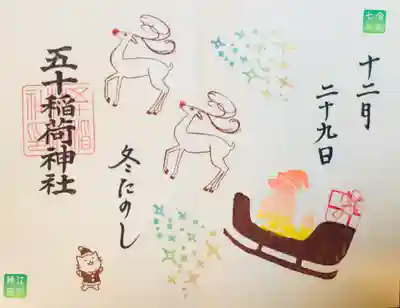 十二月
二十九日
冬たのし
五十稲荷神社